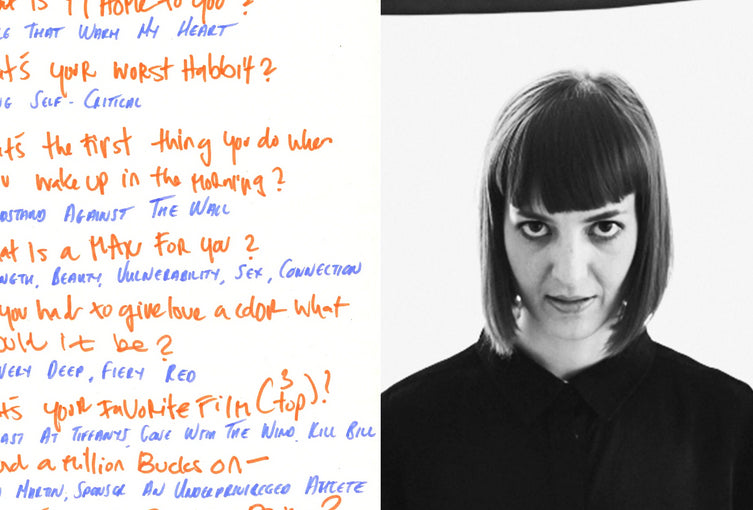 IS HOME to you?
THAT WARM MY HEART
your worst Habbit?
SELF-CRITICAL
the first thing you do when
wake up in the morning?
AGAINST THE WALL
Is a MAN FOR you?
BEAUTY, VULNERABILITY, SEX, CONNECTION
you had to give love a color what
it be?
VERY DEEP, FIERY RED
your FAVORITE FILM (3 top)?
AT TIFFANYS, GONE WITH THE WIND, KILL BILL
a Million Bucks on—
MARTIN, SPONSOR AN UNDERPRIVIREGED ATHLETE